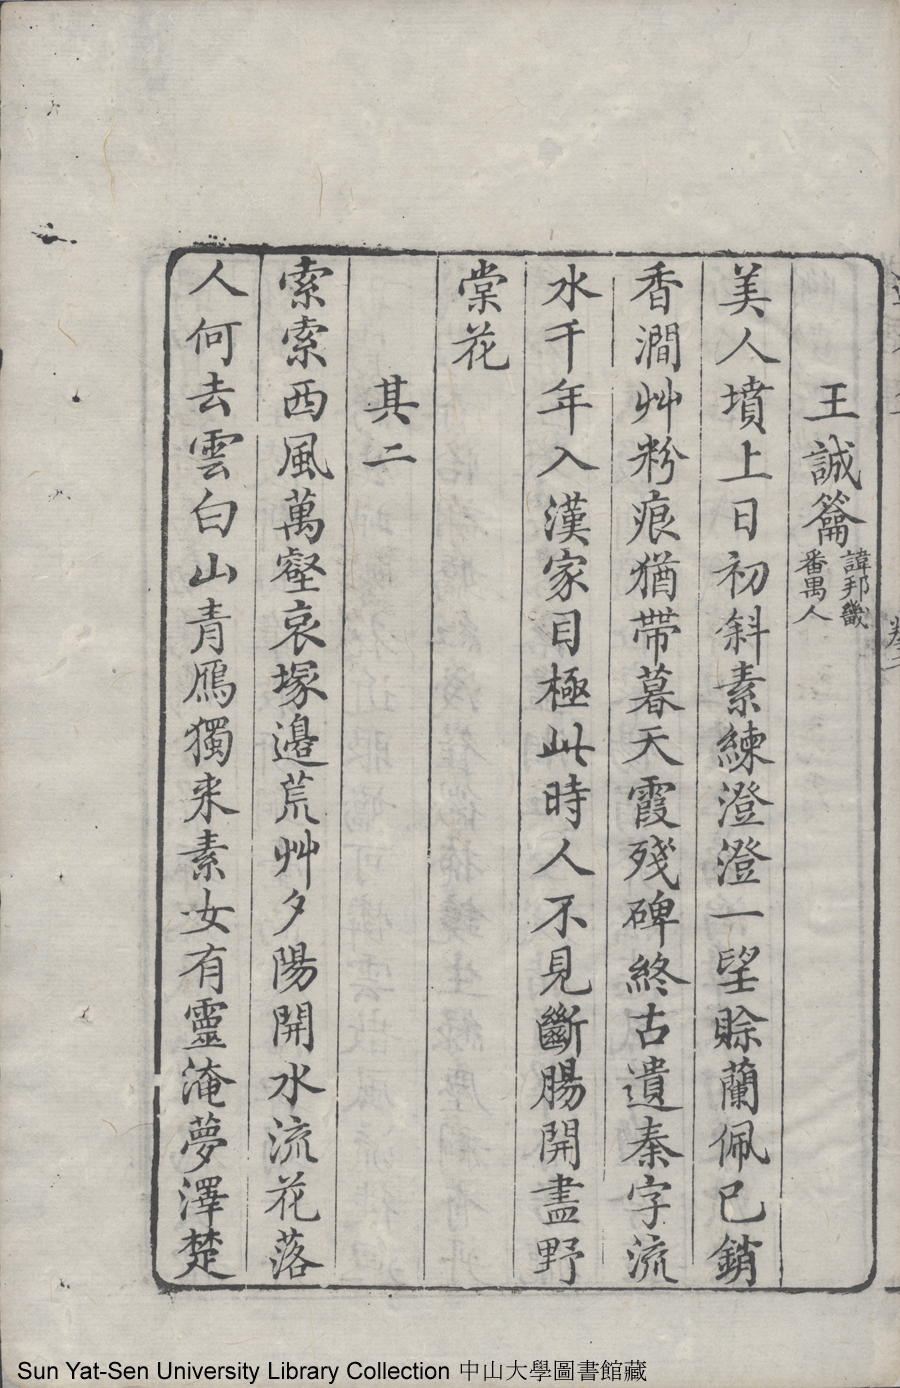 王誠籥 諱邦畿 番禺人
美人墳上日初斜素練澄澄一望賒蘭佩已銷
香澗艸粉痕猶帶暮天霞殘碑終古遺秦字流
水千年入漢家目極此時人不見斷腸開盡野
棠花
其二
索索西風萬壑哀塚邊荒艸夕陽開水流花落
人何去雲白山青鴈獨来素女有靈淹夢澤楚
Sun Yat-Sen University Library Collection 中山大學圖書館藏